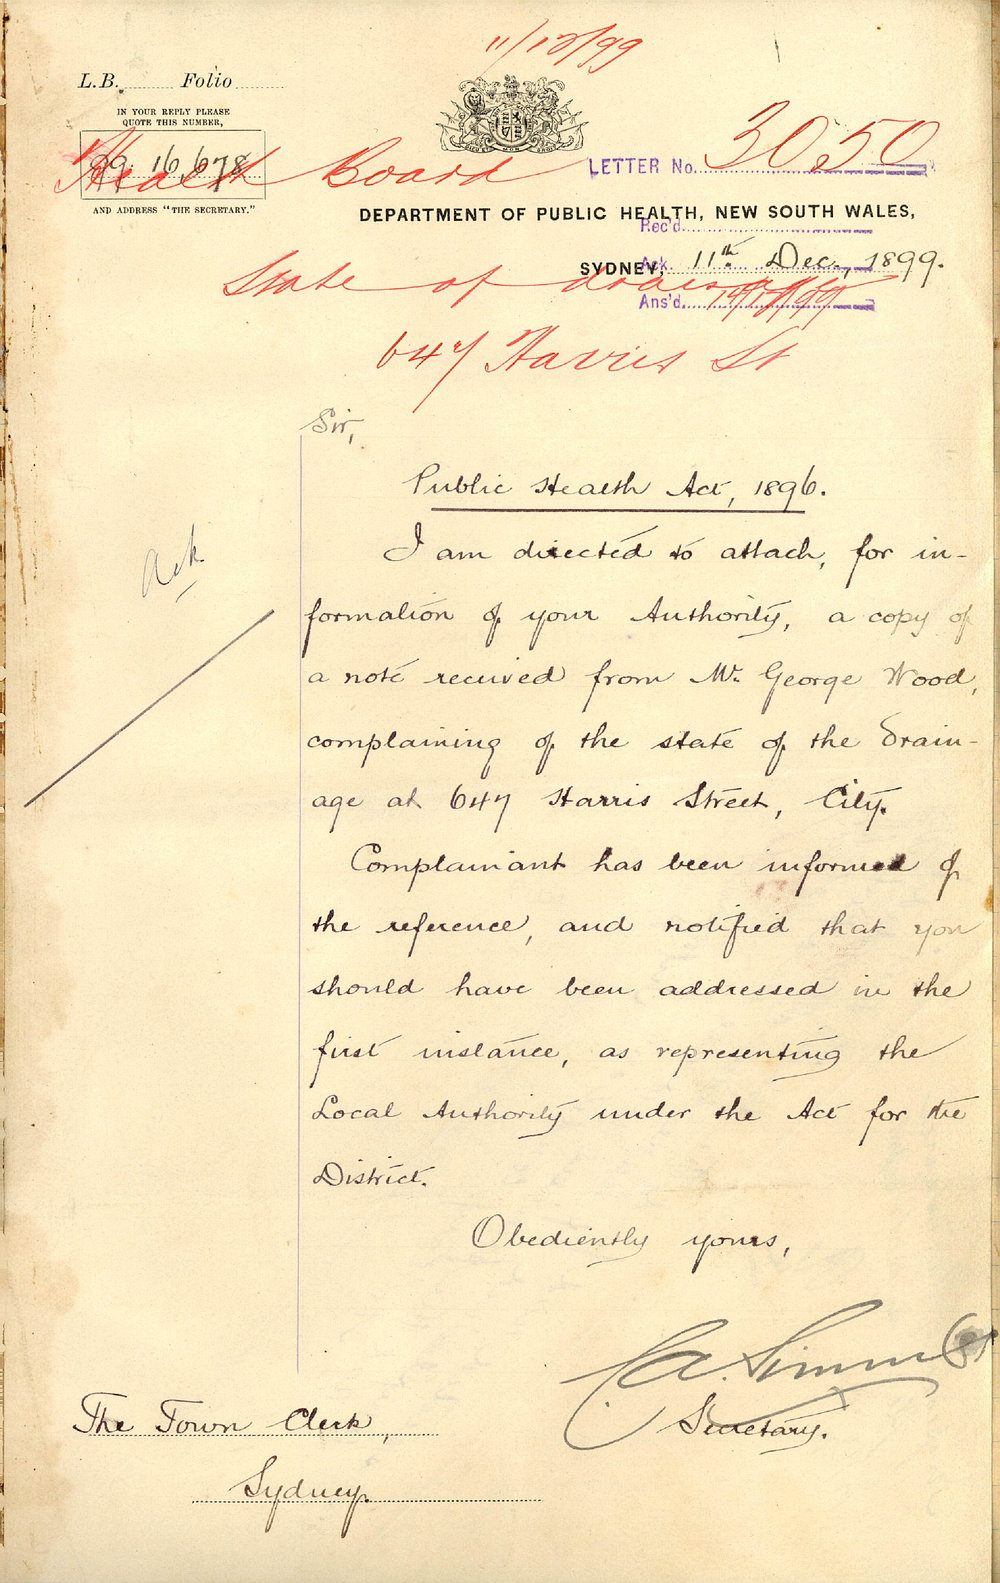 11/12/99
L.B. Folio
IN YOUR REPLY PLEASE
QUOTE THIS NUMBER,
99. 16,678
AND ADDRESS "THE SECRETARY."
Health Board
LETTER No. 3050
DEPARTMENT OF PUBLIC HEALTH, NEW SOUTH WALES,
Rec'd.
SYDNEY, 11th Dec., 1899.
Ack.
State of drainage
Ans'd.
647 Harris St
Sir,
Public Health Act, 1896.
Ack
I am directed to attach, for in-
formation of your Authority, a copy of
a note received from Mr. George Wood,
complaining of the state of the drain-
age at 647 Harris Street, City.
Complainant has been informed of
the reference, and notified that you
should have been addressed in the
first instance, as representing the
Local Authority under the Act for the
District.
Obediently yours,
Secretary.
The Town Clerk,
Sydney.